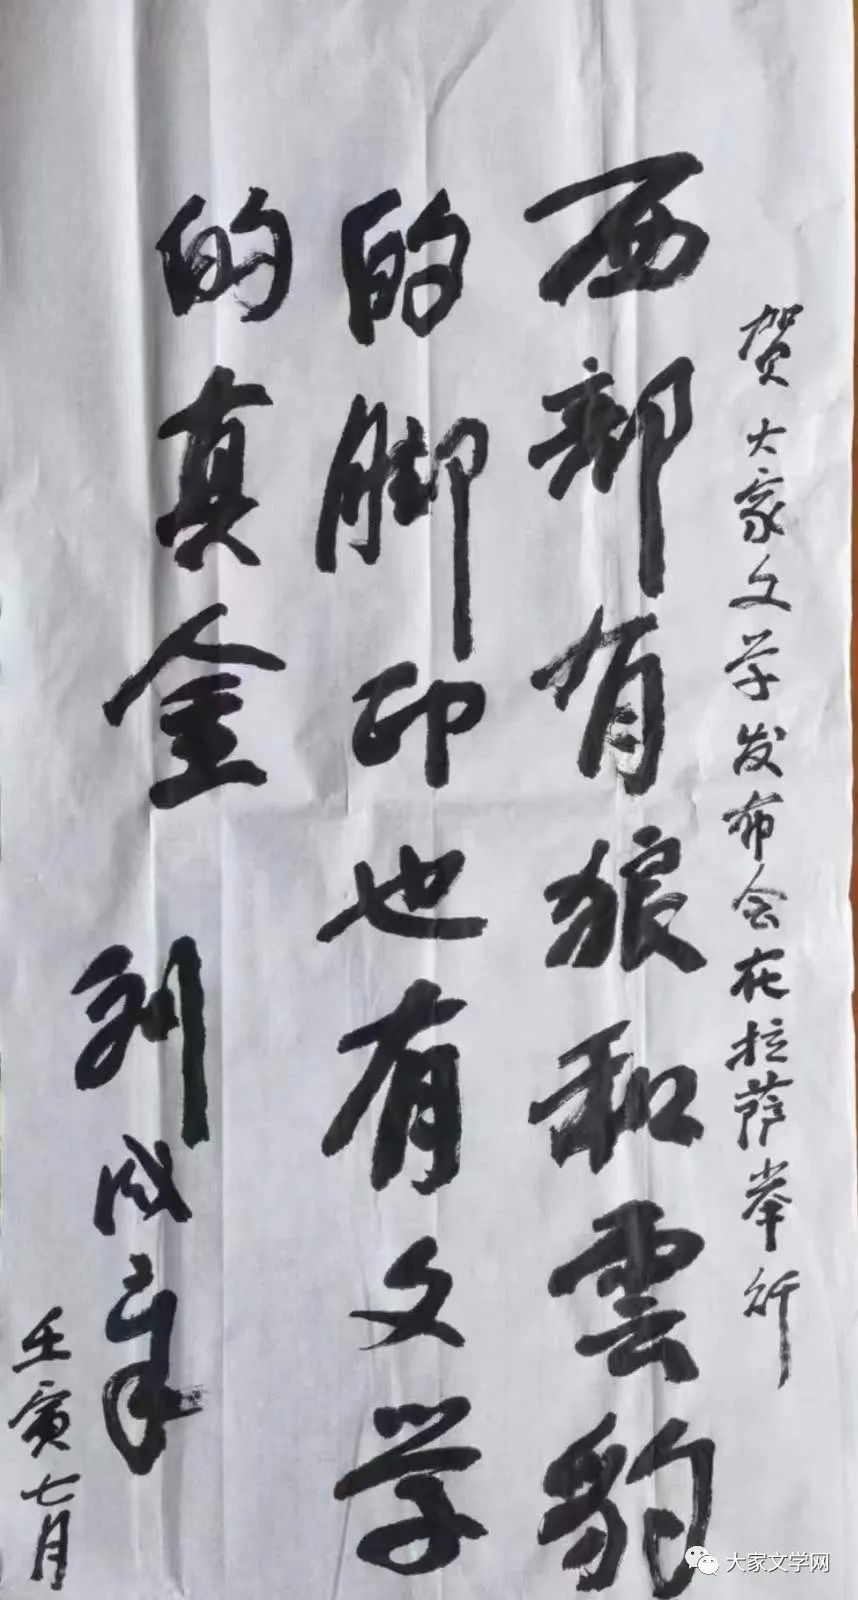 贺大家文学发布会在拉萨举行
西部有狼和雲豹
的脚印也有文学
的真金
刘成章
壬寅七月
大家文学网